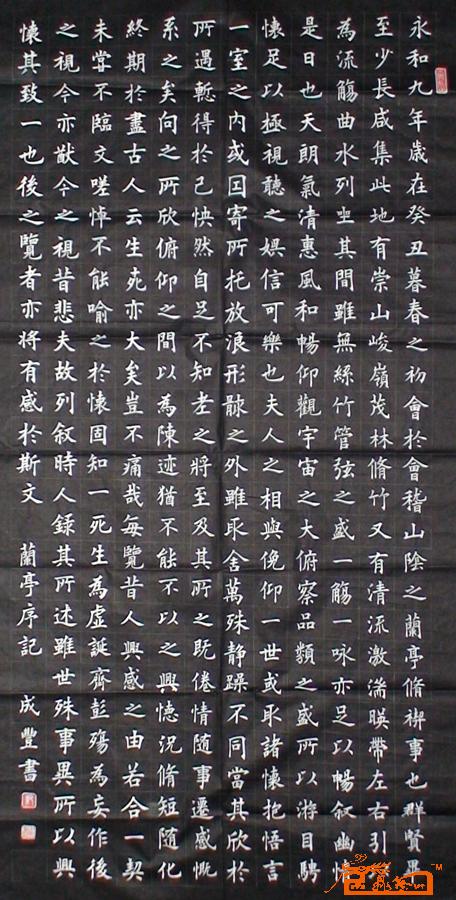 永和九年歲在癸丑暮春之初會於會稽山陰之蘭亭脩禊事也群賢畢
至少長咸集此地有崇山峻嶺茂林脩竹又有清流激湍暎帶左右引
為流觴曲水列坐其間雖無絲竹管弦之盛一觴一咏亦足以暢叙幽情
是日也天朗氣清惠風和暢仰觀宇宙之大俯察品類之盛所以游目騁
懷足以極視聽之娛信可樂也夫人之相與俛仰一世或取諸懷抱悟言
一室之内或因寄所托放浪形骸之外雖取舍萬殊静躁不同當其欣於
所遇暫得於己怏然自足不知老之將至及其所之既倦情隨事遷感慨
系之矣向之所欣俯仰之間以為陳迹猶不能不以之興懷況脩短隨化
終期於盡古人云生死亦大矣豈不痛哉每覽昔人興感之由若合一契
未嘗不臨文嗟悼不能喻之於懷固知一死生為虛誕齊彭殤為妄作後
之視今亦猷今之視昔悲夫故列叙時人錄其所述雖世殊事異所以興
懷其致一也後之覽者亦將有感於斯文 蘭亭序記 成豐書